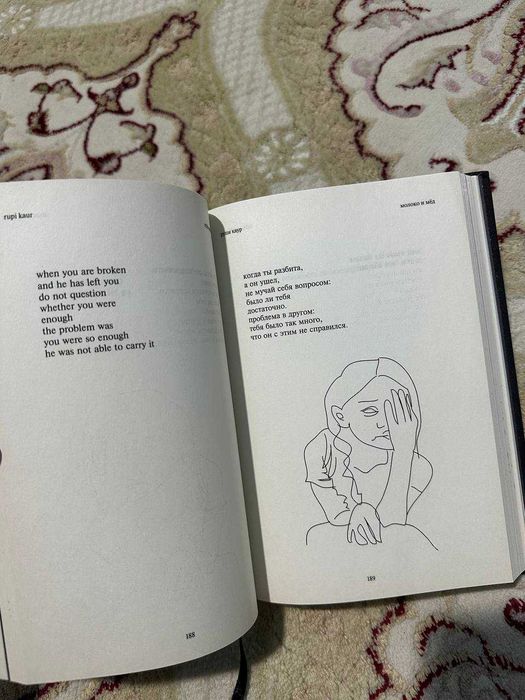 rupi kaur
when you are broken
and he has left you
do not question
whether you were
enough
the problem was
you were so enough
he was not able to carry it
188
рупи каур
молоко и мёд
когда ты разбита,
а он ушел,
не мучай себя вопросом:
было ли тебя
достаточно.
проблема в другом:
тебя было так много,
что он с этим не справился.
189